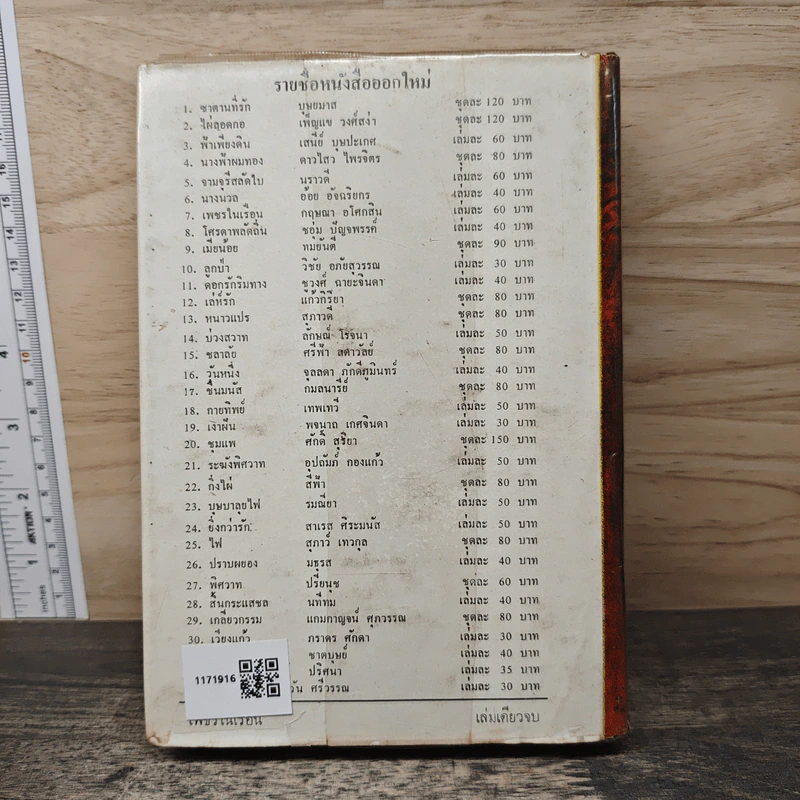 รายชื่อหนังสือออกใหม่
1. ซาตานที่รัก บุษยมาส ชุดละ 120 บาท
2. ไผ่ลอดกอ เพ็ญแข วงศ์สง่า ชุดละ 120 บาท
3. ฟ้าเพียงดิน เสนีย์ บุษปะเกศ เล่มละ 60 บาท
4. นางฟ้าผมทอง ดาวไสว ไพรจิตร ชุดละ 80 บาท
5. จามจุรีสลัดใบ นราวดี เล่มละ 60 บาท
6. นางนวล อ้อย อัจฉริยกร เล่มละ 40 บาท
7. เพชรในเรือน กฤษณา อโศกสิน เล่มละ 60 บาท
8. โศรดาพลัดถิ่น ชอุ่ม ปัญจพรรค์ เล่มละ 40 บาท
9. เมียน้อย ทมยันตี ชุดละ 90 บาท
10. ลูกป่า วิชัย อภัยสุวรรณ เล่มละ 30 บาท
11. ดอกรักริมทาง ชูวงศ์ ฉายะจินดา เล่มละ 40 บาท
12. เล่ห์รัก แก้วกิริยา ชุดละ 80 บาท
13. หนาวแปร สุภาวดี ชุดละ 80 บาท
14. บ่วงสวาท ลักษณ์ โรจนา เล่มละ 50 บาท
15. ชลาลัย ศรีฟ้า ลดาวัลย์ ชุดละ 80 บาท
16. วันหนึ่ง จุลลดา ภักดีภูมินทร์ เล่มละ 40 บาท
17. ชื่นมนัส กมลนารีย์ ชุดละ 80 บาท
18. กายทิพย์ เทพเทวี เล่มละ 50 บาท
19. เงาฝัน พจนาถ เกศจินดา เล่มละ 30 บาท
20. ชุมแพ ศักดิ์ สุริยา ชุดละ 150 บาท
21. ระฆังพิศวาท อุปถัมภ์ กองแก้ว เล่มละ 50 บาท
22. กิ่งไผ่ สีฟ้า ชุดละ 80 บาท
23. บุษบาลุยไฟ รมณียา เล่มละ 50 บาท
24. ยิ่งกว่ารัก สาเรส ศิระมนัส เล่มละ 50 บาท
25. ไฟ สุภาว์ เทวกุล ชุดละ 80 บาท
26. ปราบผยอง มธุรส เล่มละ 40 บาท
27. พิศวาท ปรียนุช ชุดละ 60 บาท
28. สิ้นกระแสชล นทีทม เล่มละ 40 บาท
29. เกลียวกรรม แกมกาญจน์ ศุภวรรณ ชุดละ 80 บาท
30. เวียงแก้ว ภราดร ศักดา เล่มละ 30 บาท
ชาตบุษย์ เล่มละ 40 บาท
ปริศนา เล่มละ 35 บาท
วัน ศรีวรรณ เล่มละ 30 บาท
1171916
เพชรในเรือน เล่มเดียวจบ
inches
ACTION